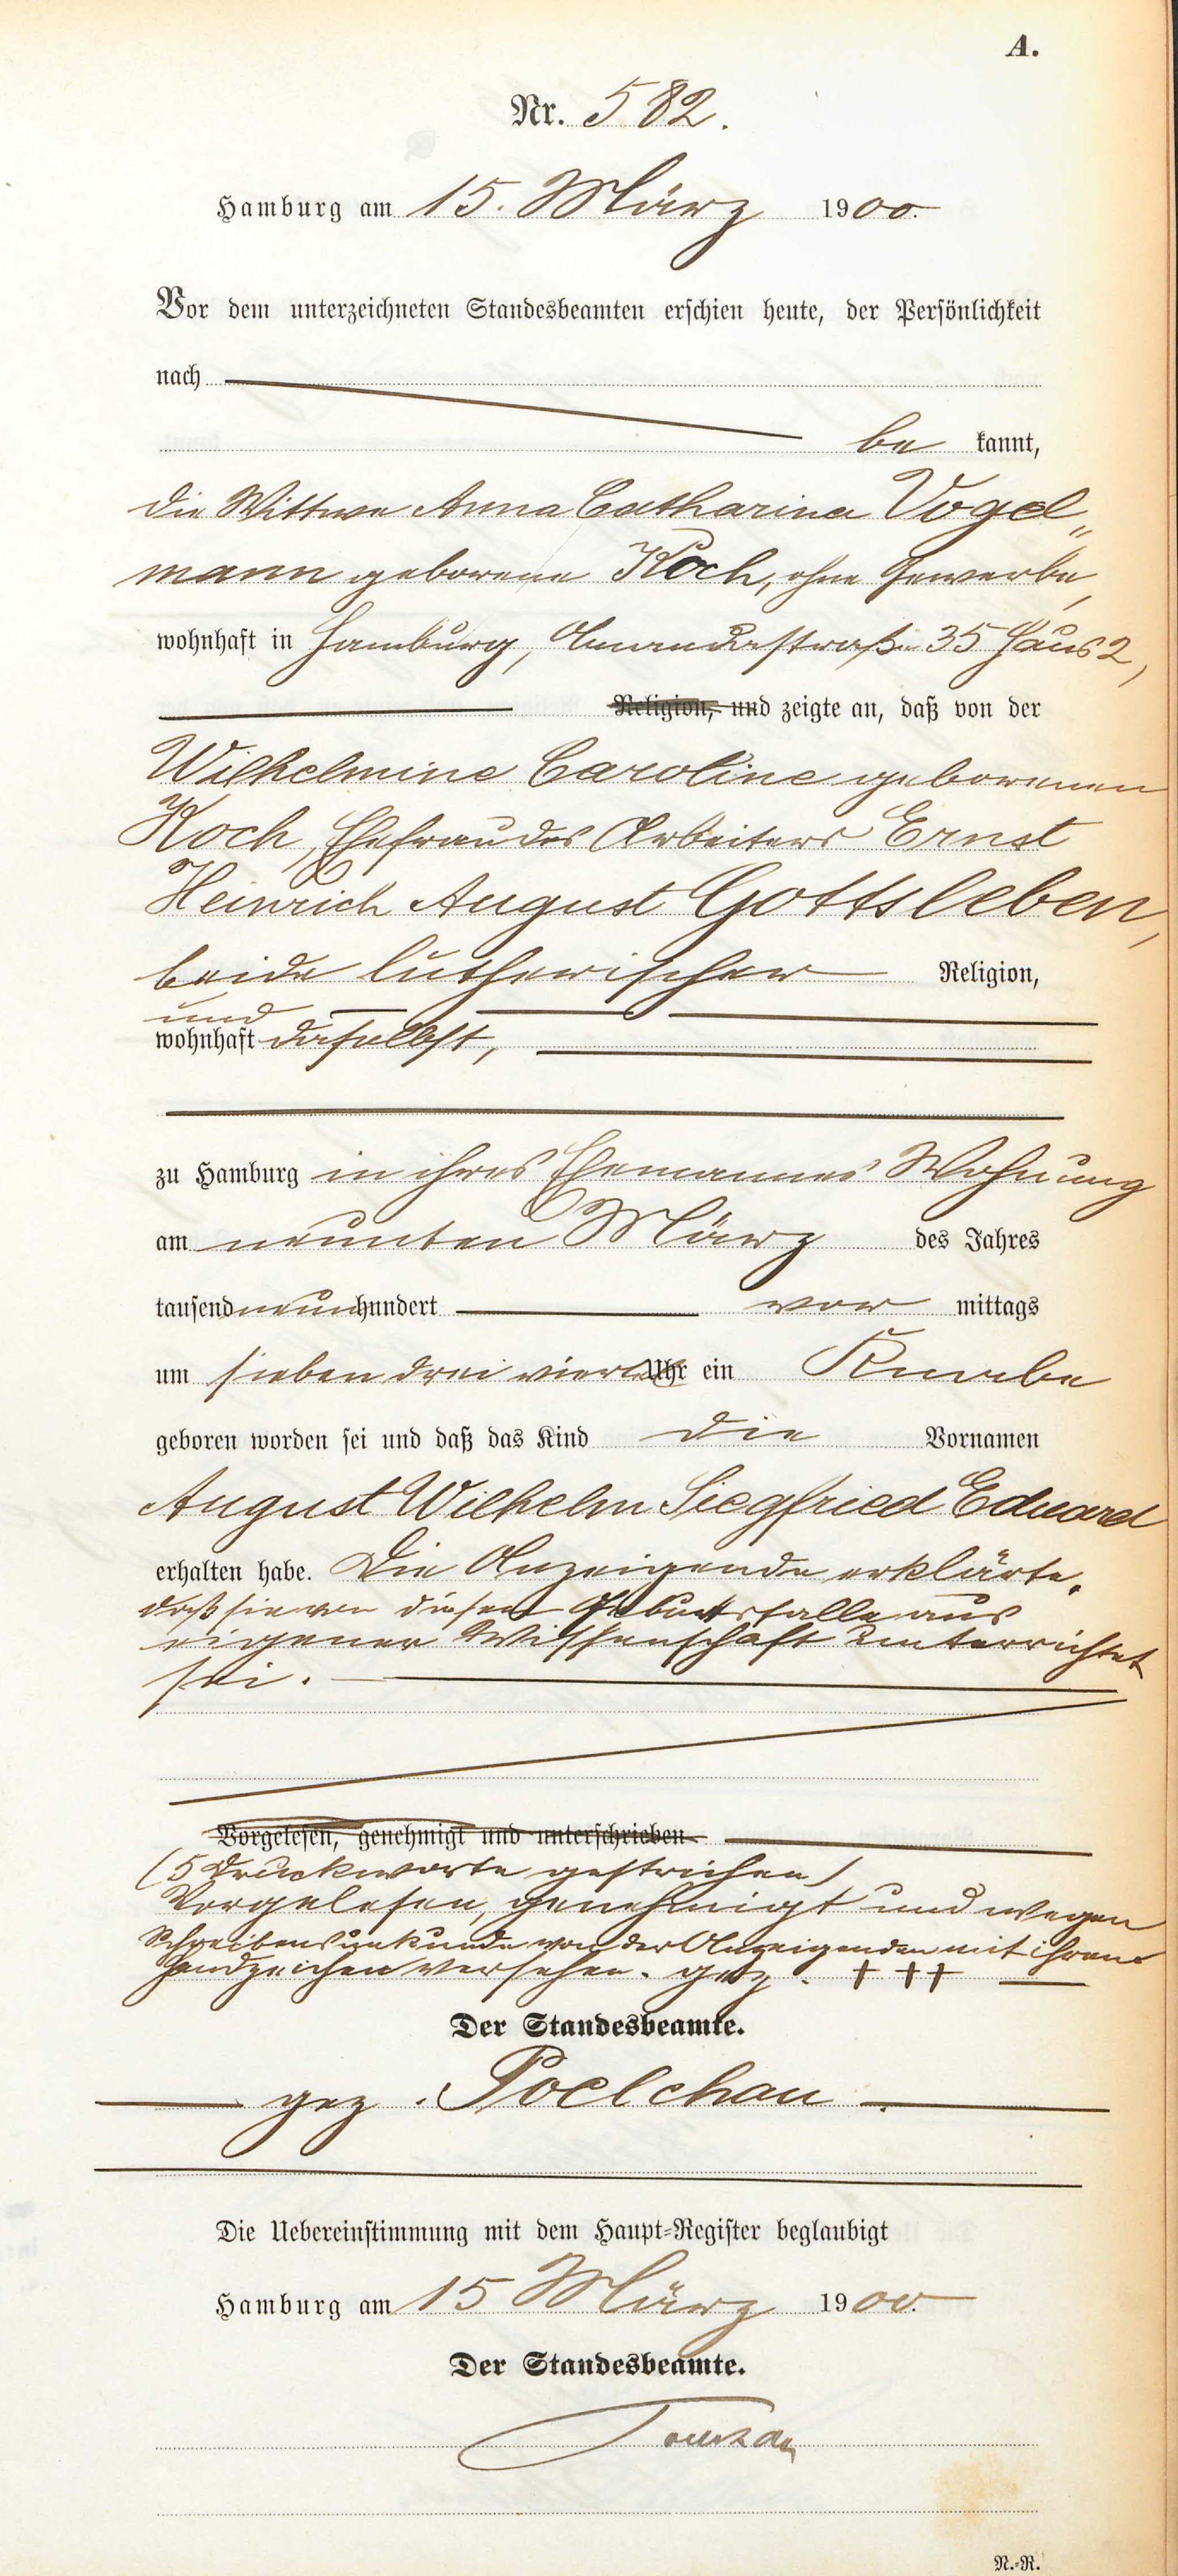 A.
Nr. 582.
Hamburg am 15. März 1900.
Vor dem unterzeichneten Standesbeamten erschien heute, der Persönlichkeit
nach
be kannt,
die Wittwe Anna Catharina Vogel„
mann geborene Koch, ohne Gewerbe,
wohnhaft in Hamburg, Amandastraße 35 Haus 2,
Religion, und zeigte an, daß von der
Wilhelmine Caroline geborenen
Koch, Ehefrau des Arbeiters Ernst
Heinrich August Gottsleben,
beide lutherischer Religion,
und
wohnhaft daselbst,
zu Hamburg in ihres Ehemannes Wohnung
am neunten März des Jahres
tausend neunhundert vor mittags
um sieben drei viertel Uhr ein Knabe
geboren worden sei und daß das Kind die Vornamen
August Wilhelm Siegfried Eduard
erhalten habe. Die Anzeigende erklärte,
daß sie von diesem Geburtsfalle aus
eigener Wissenschaft unterrichtet
sei.
Vorgelesen, genehmigt und unterschrieben
(5 Druckworte gestrichen)
Vorgelesen, genehmigt und wegen
Schreibensunkunde von der Anzeigenden mit ihrem
Handzeichen versehen. gez. + + +
Der Standesbeamte.
gez. Poelchau.
Die Uebereinstimmung mit dem Haupt-Register beglaubigt
Hamburg am 15 März 1900.
Der Standesbeamte.
N.-R.